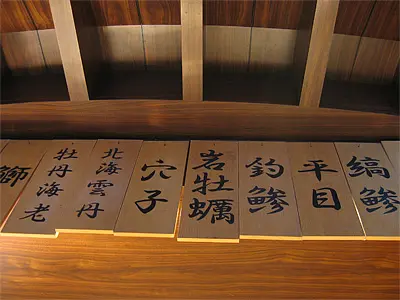 縞鯵
平目
釣鯵
岩牡蠣
穴子
北海雲丹
牡丹海老
鰤